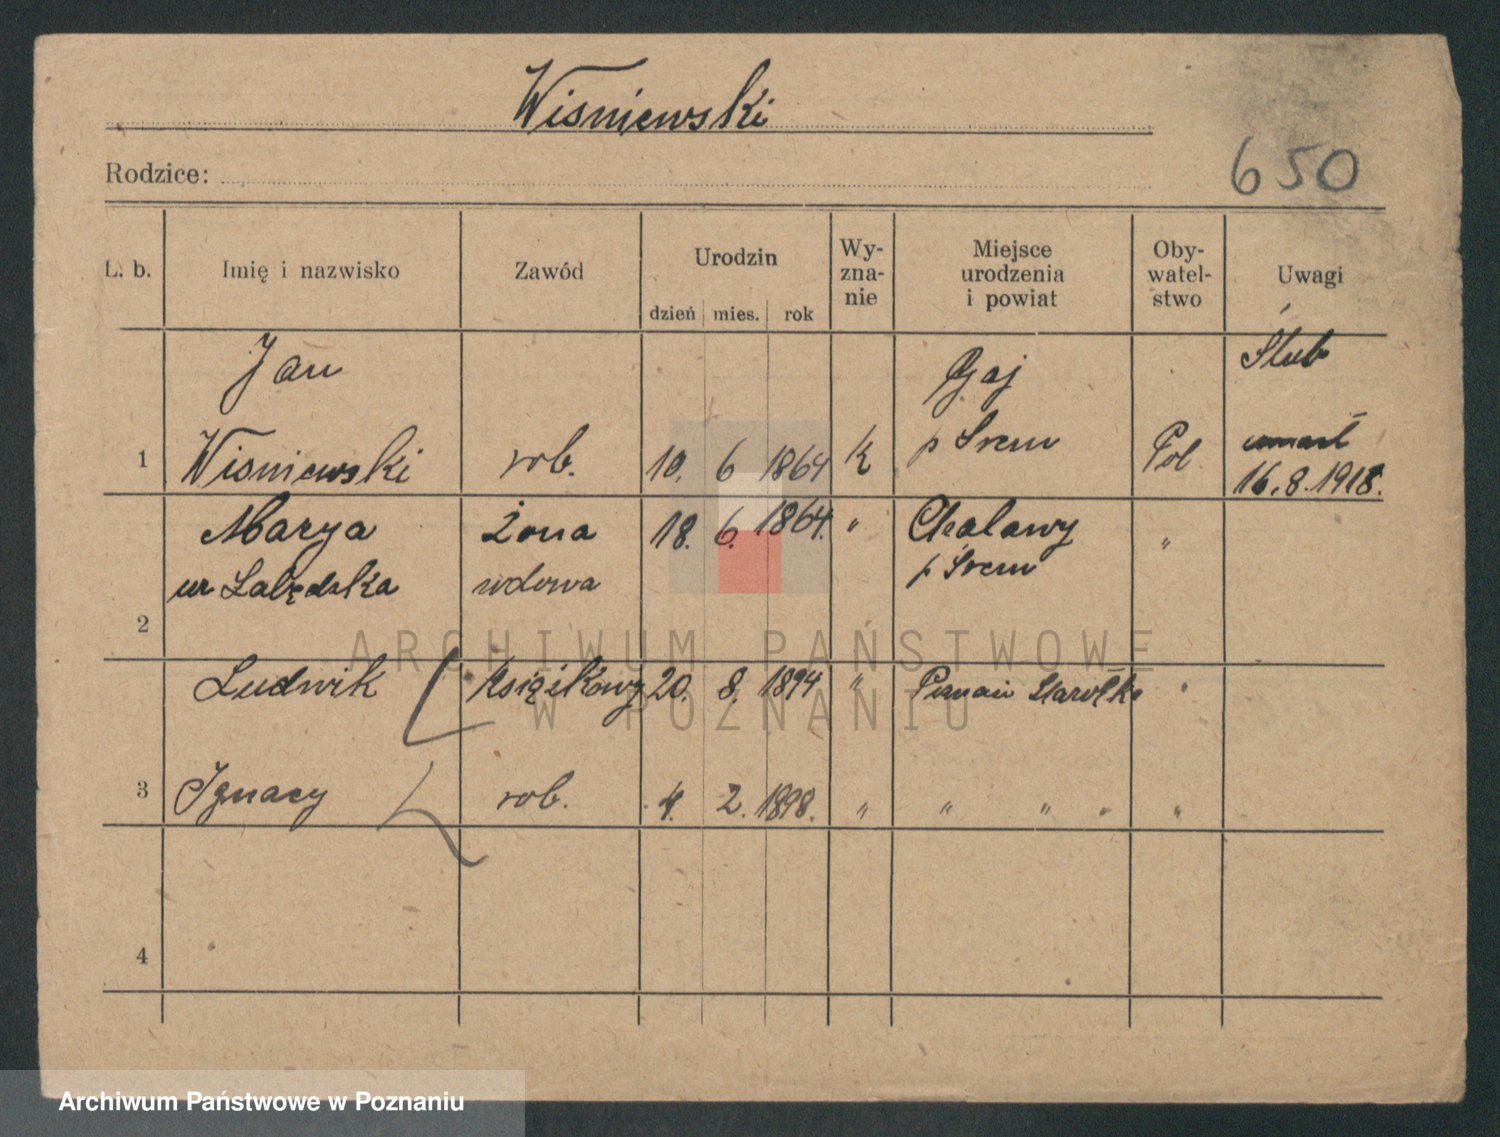 Wiśniewski
650
Rodzice:
L. b. Imię i nazwisko Zawód Urodzin dzień mies. rok Wy-zna-nie Miejsce urodzenia i powiat Oby-watel-stwo Uwagi
Jan Gaj Ślub
1 Wisniewski rob. 10. 6 1864 k p Srem Pol umarł
16.8.1918.
Marya Żona 18. 6. 1864. " Chalawy "
ur Łabędzka wdowa p Śrem
2
ARCHIWUM PAŃSTWOWE
W POZNANIU
Ludwik książkowy 20. 8. 1894 " Poznań Starołka "
3 Ignacy rob. 4. 2. 1898. " " " "
4
Archiwum Państwowe w Poznaniu